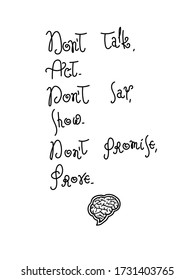 Don't Talk,
Act.
Don't Say,
Show.
Don't Promise,
Prove.
shutterstock.com · 1731403765